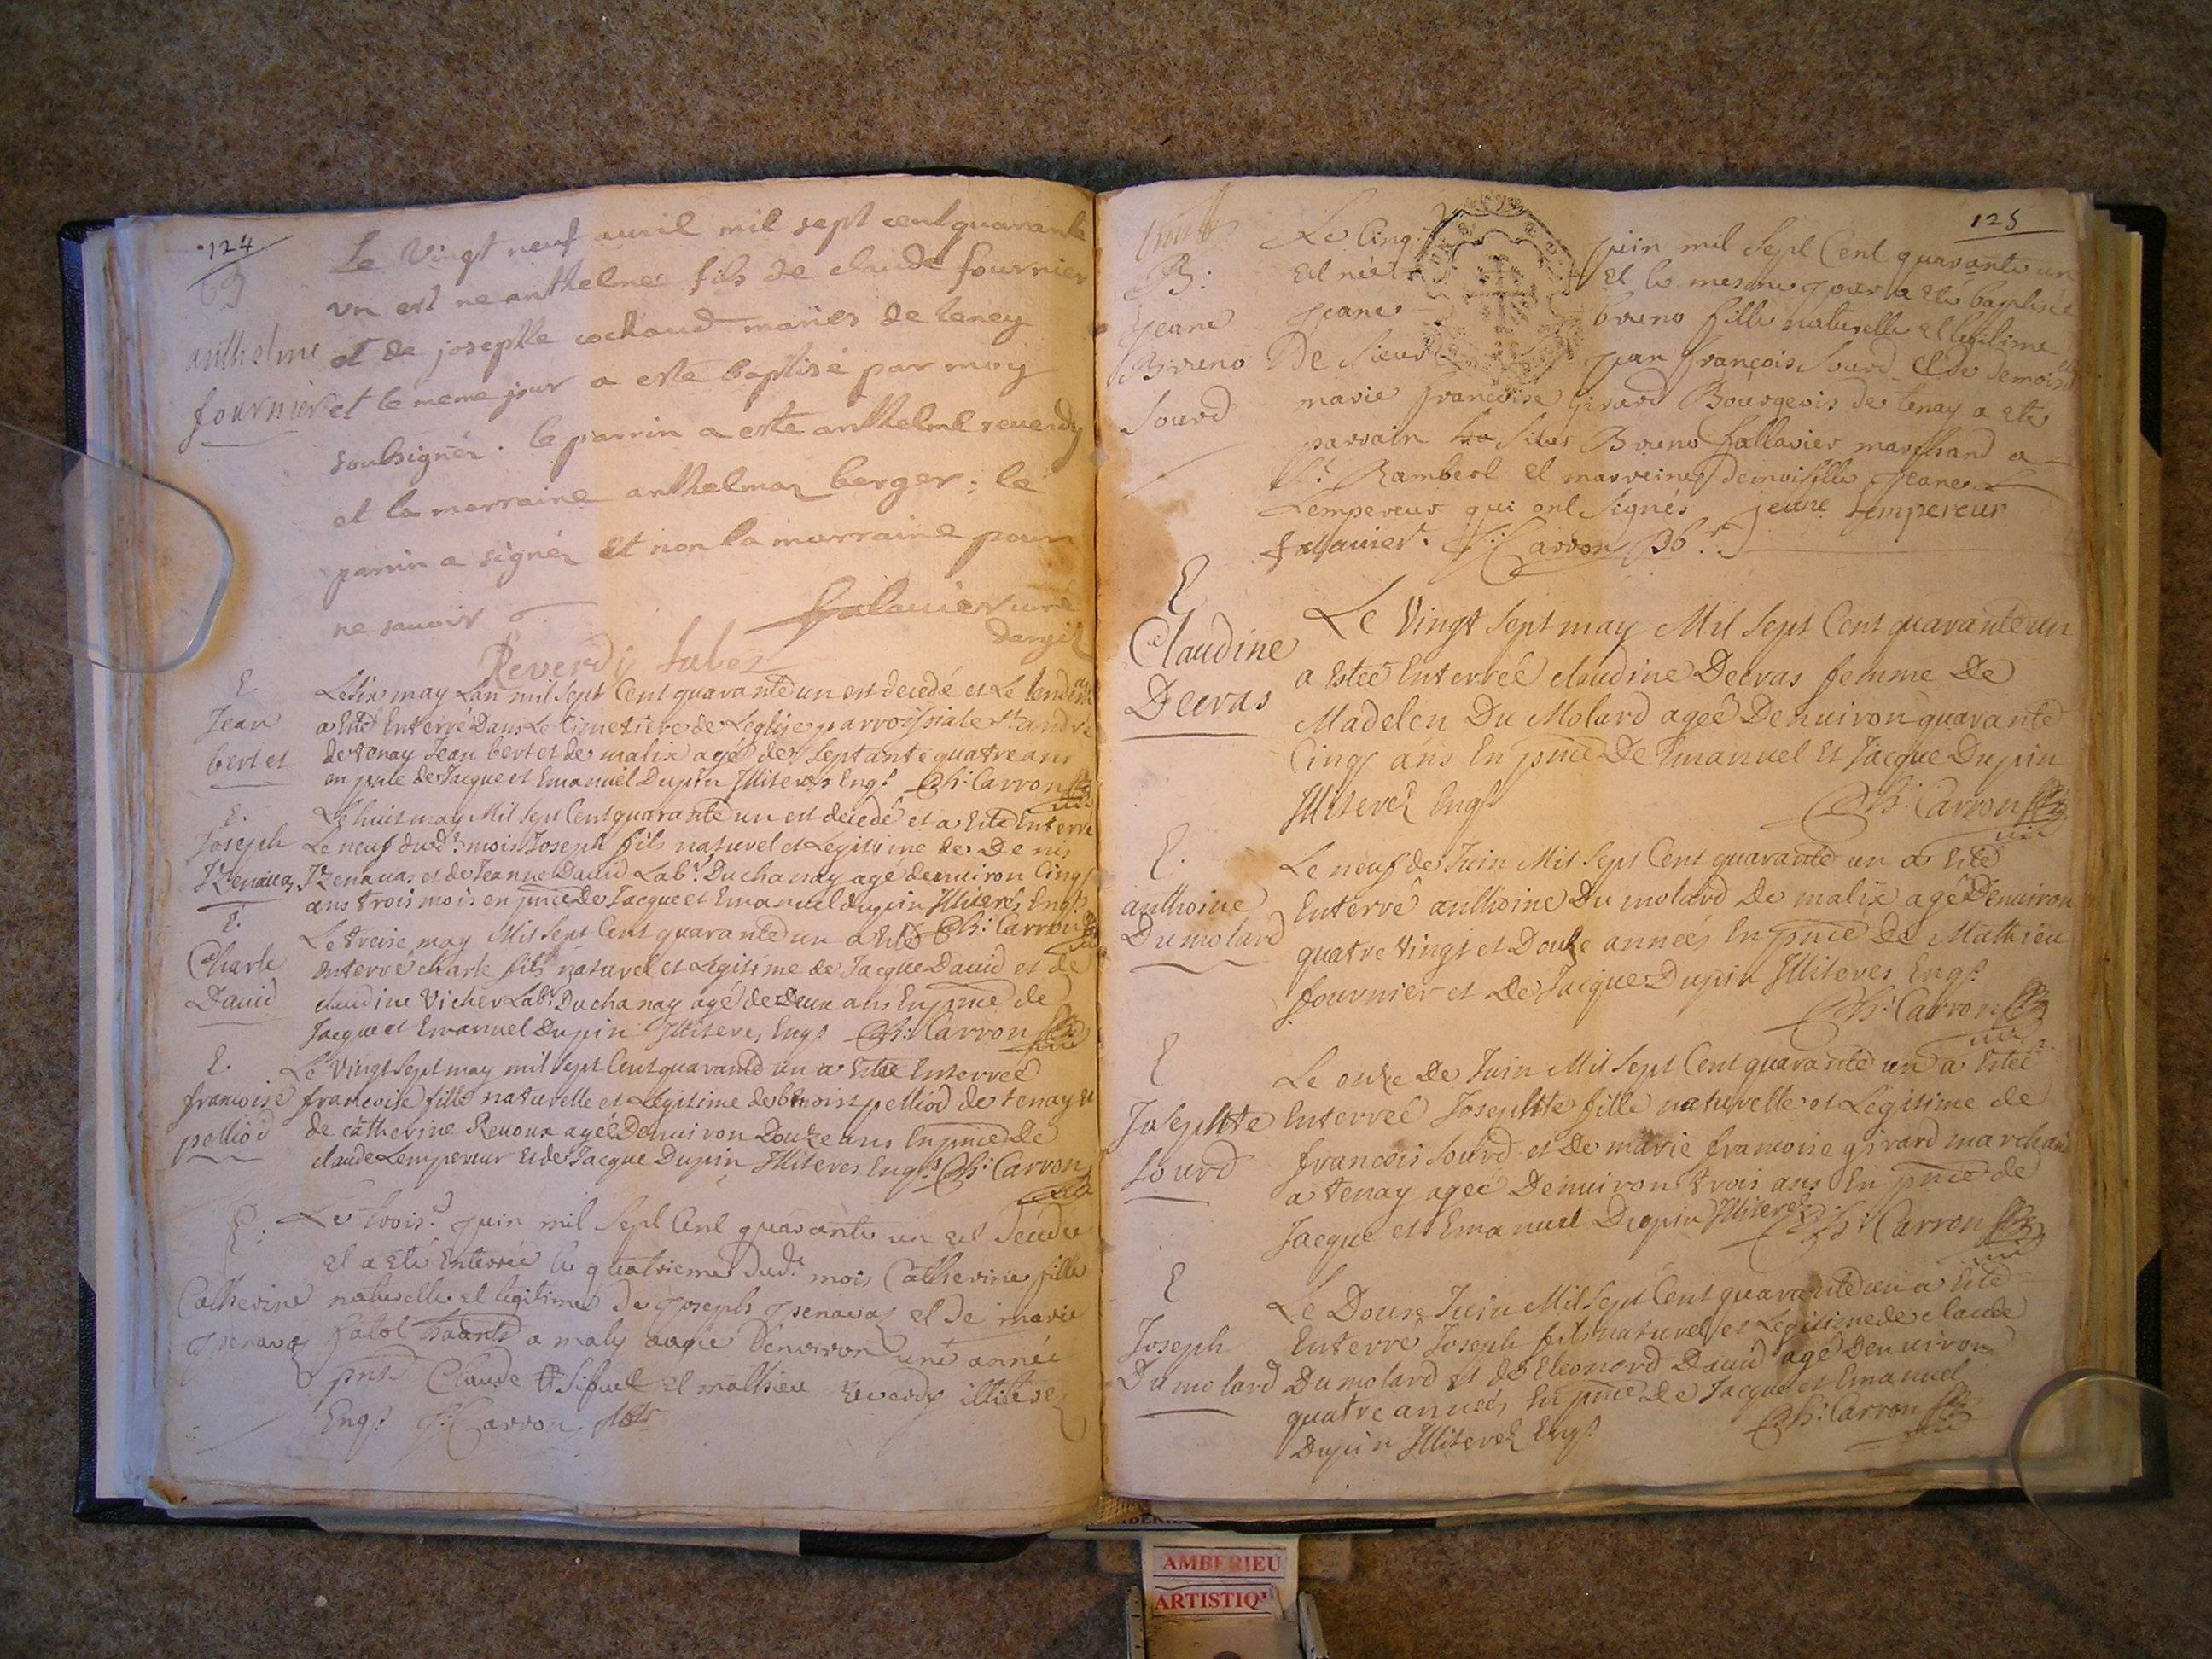 124
Le Vingt neuf auril mil sept cent quarante
un est ne anthelme fils de claude fournier
et de josephe cochaud mariés de teney
anthelme
fournier
et le meme jour a este baptisé par moy
soubsignéz. le parrin a este anthelme reuerdy
et la marraine anthelmaz berger; le
parrin a signéz et non la marraine pour
ne sauoir
falauier curé
dargis
Reverdy
E.
Jean
bertet
Le six may Lan mil sept Cent quarante un est decedé et Le lendemain
a Esté Enterré Dans Le Cimetiere de Leglise parroissiale St andré
de tenay Jean bertet de malix agé de septante quatre ans
en pnce de Jacque et Emanuel Dupin Illiteres Engs Ch: Carron
E.
Joseph
Jzenauaz
Le huit may Mil sept Cent quarante un est decedé et a Esté Enterré
Le neuf dud: mois Joseph fils naturel et Legitime de Denis
Jzenauaz et de Jeanne Dauid Labr Du chanay agé denuiron Cinq
ans trois mois en pnce de Jacque et Emanuel dupin Illiteres Engs
Ch: Carron
E.
Charle
Dauid
Le treise may Mil sept Cent quarante un a Esté
Enterré charle fils naturel et Legitime de Jacque Dauid et de
claudine Vicher Labr Du chanay agé de Deux ans En pnce de
Jacque et Emanuel Dupin Illiteres Engs Ch: Carron
E.
francoise
pelliod
Le Vingt sept may mil sept Cent quarante un a Estée Enterreé
francoise fille naturelle et Legitime de benoist pelliod de tenay et
de catherine Reuoux ageé Denuiron Douze ans En pnce de
claude Lempereur et de Jacque Dupin Illiteres Engs Ch: Carron
E.
Catherine
Jsenauaz
Le trois: juin mil sept Cent quarante un est Decedée
et a Eté Enterrée le quatrieme dud: mois Catherine fille
naturelle et legitime de joseph jsenauaz et de marie
fatol a maly
Denviron une année
Claude et mathieu Reverdy illiterez
Engs Carron
125
B.
Jeane
Bruno
Sourd
Le Cinq juin mil Sept Cent quarante un
Est née et le mesme jour a Eté baptisée
Jeane bruno fille naturelle et legitime
De Sieur jean françois Sourd et de demoiselle
marie françoise Girard Bourgeois de tenay a eté
parrain Sieur Bruno fallavier marchand a
St Rambert et marreine demoiselle jeane
Lempereur qui ont Signés jeane Lempereur
falauier. Carron
E
Claudine
Decras
Le Vingt Sept may Mil Sept Cent quarante un
a Esteé Enterreé claudine Decras femme De
Madelen Du Molard ageé Denuiron quarante
Cinq ans En pnce De Emanuel Et Jacque Dupin
Illiterez Engs
Ch: Carron
E.
anthoine
Dumolard
Le neuf de Juin Mil Sept Cent quarante un a Esté
Enterré anthoine Du molard de malix agé Denuiron
quatre Vingt et Douze anneés En pnce de Mathieu
fournier et De Jacque Dupin Illiteres Engs
Ch: Carron
E
Josephte
Sourd
Le onze De Juin Mil Sept Cent quarante un a Esteé
Enterreé Josephte fille naturelle et Legitime de
francois Sourd et De marie francoise girard marchand
a tenay ageé Denuiron trois ans En pnce de
Jacque et Emanuel Dupin Illiterez
Ch: Carron
E
Joseph
Dumolard
Le Douze Juin Mil Sept Cent quarante un a Esté
Enterré Joseph fils naturel et Legitime de claude
Dumolard et de Eleonord Dauid agé Denuiron
quatre anneés En pnce De Jacque et Emanuel
Dupin Illiterez Engs
Ch: Carron
AMBERIEU
ARTISTIQ